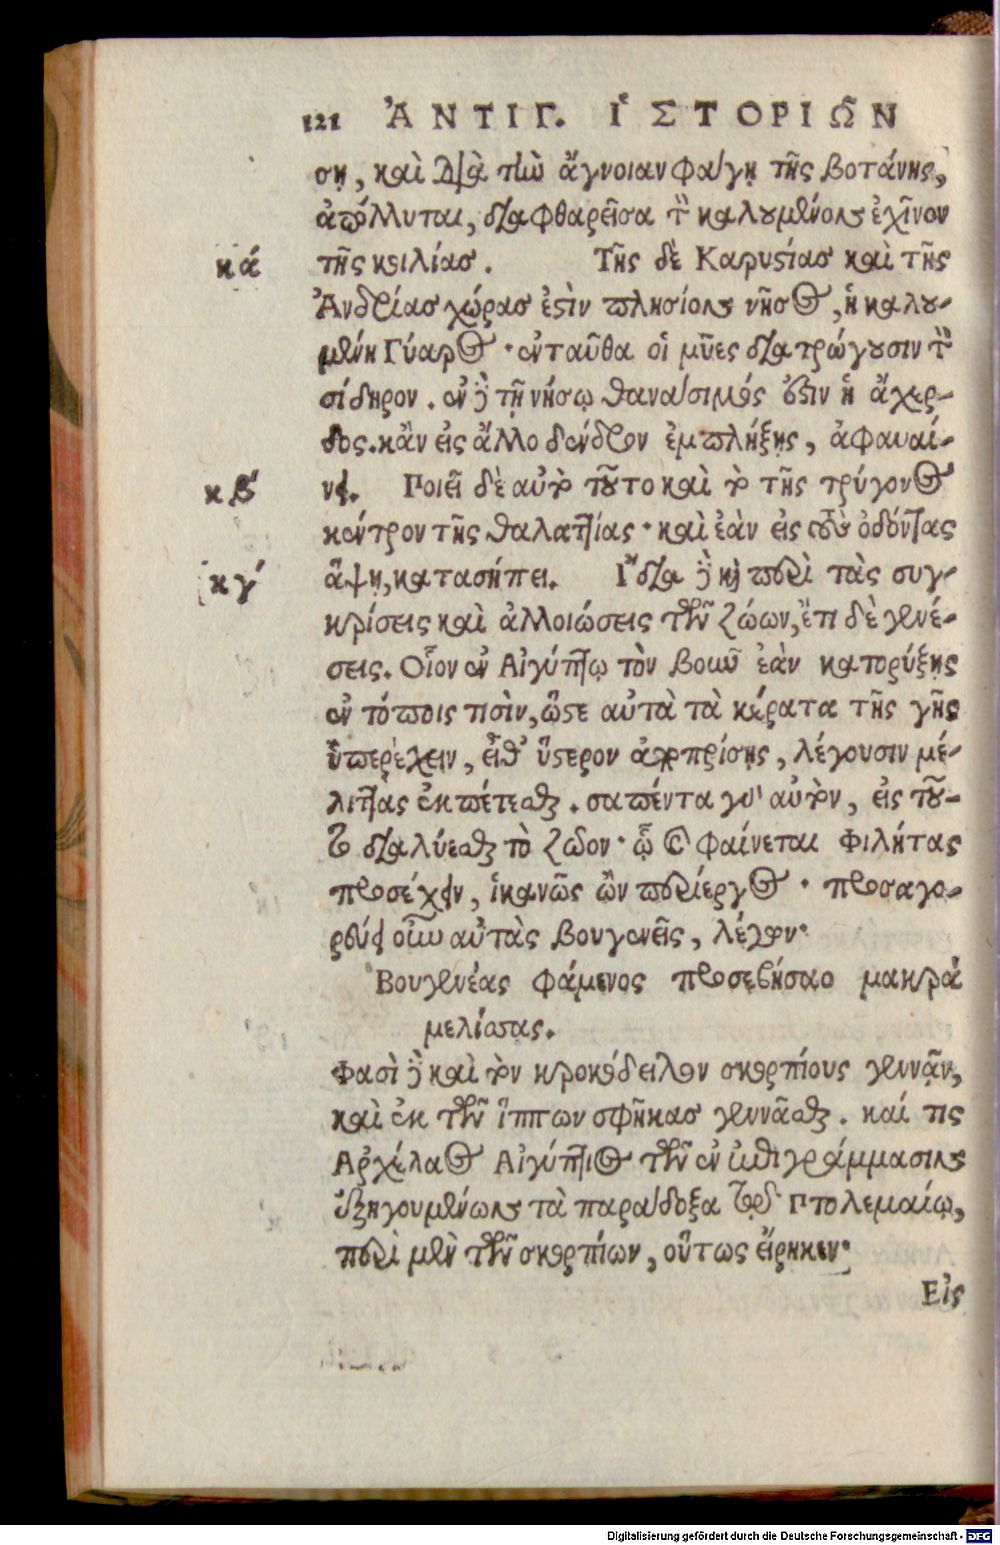 121 ἈΝΤΙΓ. ἹΣΤΟΡΙΩ͂Ν
ση, καὶ διὰ τὴν ἄγνοιαν φάγῃ τῆς βοτάνης,
ἀπόλλυται, διαφθαρεῖσα τὸν καλούμενον ἐχῖνον
κά τῆς κοιλίας. Τῆς δὲ Καρυστίας καὶ τῆς
Ἀνδρίας χώρας ἐστὶν πλησίον νῆσος, ἡ καλου-
μένη Γύαρος· ἐνταῦθα οἱ μῦες διατρώγουσιν τὸν
σίδηρον. ἐν δὲ τῇ νήσῳ θανάσιμός ἐστιν ἡ ἄχερ-
δος. κἂν εἰς ἄλλο δένδρον ἐμπλήξῃς, ἀφαυαί-
κβ́ νει. Ποιεῖ δὲ αὐτὸ τοῦτο καὶ τὸ τῆς τρύγονος
κέντρον τῆς θαλαττίας· καὶ ἐὰν εἰς τοὺς ὀδόντας
κγ́ ἅψῃ, κατασήπει. Ἴδια δὲ καὶ περὶ τὰς συγ-
κρίσεις καὶ ἀλλοιώσεις τῶν ζώων, ἔτι δὲ γενέ-
σεις. Οἷον ἐν Αἰγύπτῳ τὸν βοῦν ἐὰν κατορύξῃς
ἐν τόποις τισὶν, ὥστε αὐτὰ τὰ κέρατα τῆς γῆς
ὑπερέχειν, εἶθ' ὕστερον ἀποπρίσῃς, λέγουσιν με-
λίττας ἐκπέτεσθαι. σαπέντα γὰρ αὐτὸν, εἰς τοῦ-
το διαλύεσθαι τὸ ζῶον· ᾧ καὶ φαίνεται Φιλήτας
προσέχειν, ἱκανῶς ὢν περίεργος· προσαγο-
ρεύει οὖν αὐτὰς βουγενεῖς, λέγων·
Βουγενέας φάμενος προσεβήσαο μακρὰ
μελίσσας.
Φασὶ δὲ καὶ τὸν κροκόδειλον σκορπίους γεννᾷν,
καὶ ἐκ τῶν ἵππων σφῆκας γεννᾶσθαι. καί τις
Ἀρχέλαος Αἰγύπτιος τῶν ἐν ἐπιγράμμασιν
ἐξηγουμένων τὰ παράδοξα τῷ Πτολεμαίῳ,
περὶ μὲν τῶν σκορπίων, οὕτως εἴρηκεν·
Εἰς
Digitalisierung gefördert durch die Deutsche Forschungsgemeinschaft - DFG